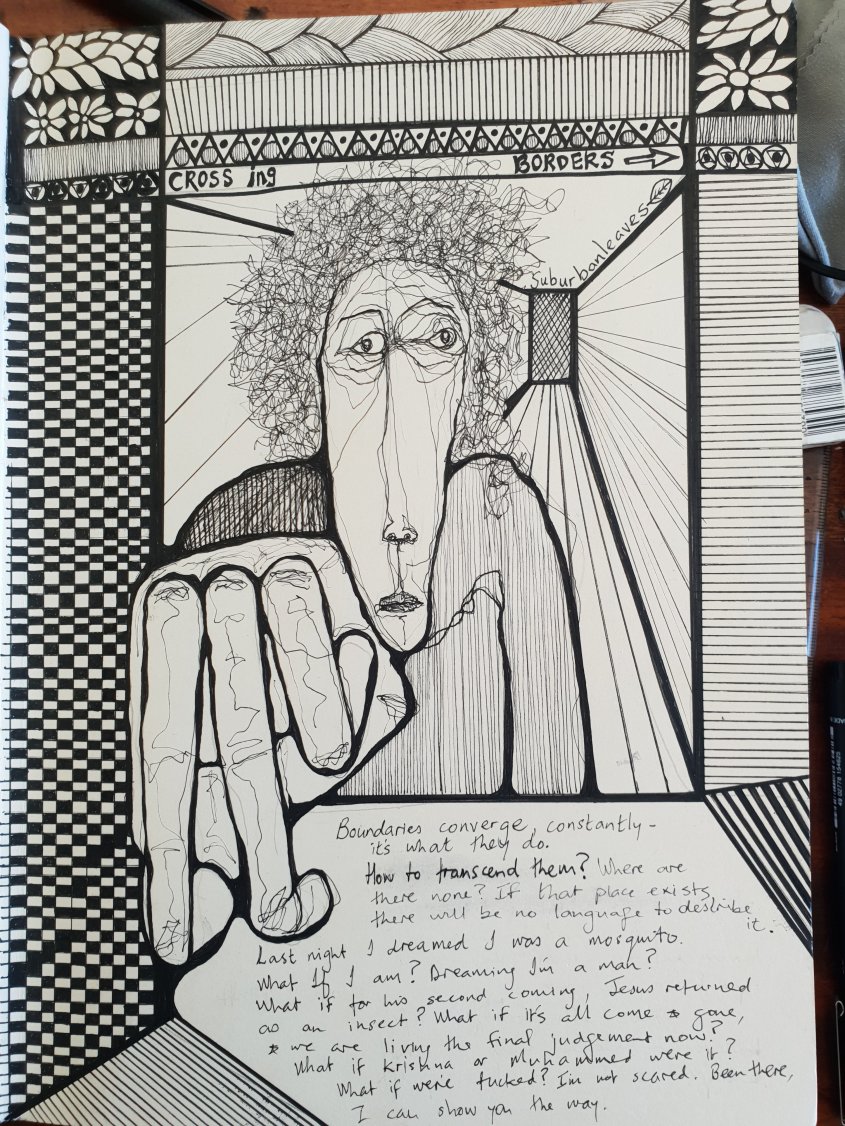 CROSS ing BORDERS
suburbanleaves
Boundaries converge, constantly -
it's what they do.
How to transcend them? Where are
there none? If that place exists,
there will be no language to describe
it.
Last night I dreamed I was a mosquito.
What If I am? Dreaming I'm a man?
What if for his second coming, Jesus returned
as an insect? What if it's all come & gone,
& we are living the final judgement now?
What if Krishna or Muhammed were it?
What if we're fucked? I'm not scared. Been there,
I can show you the way.